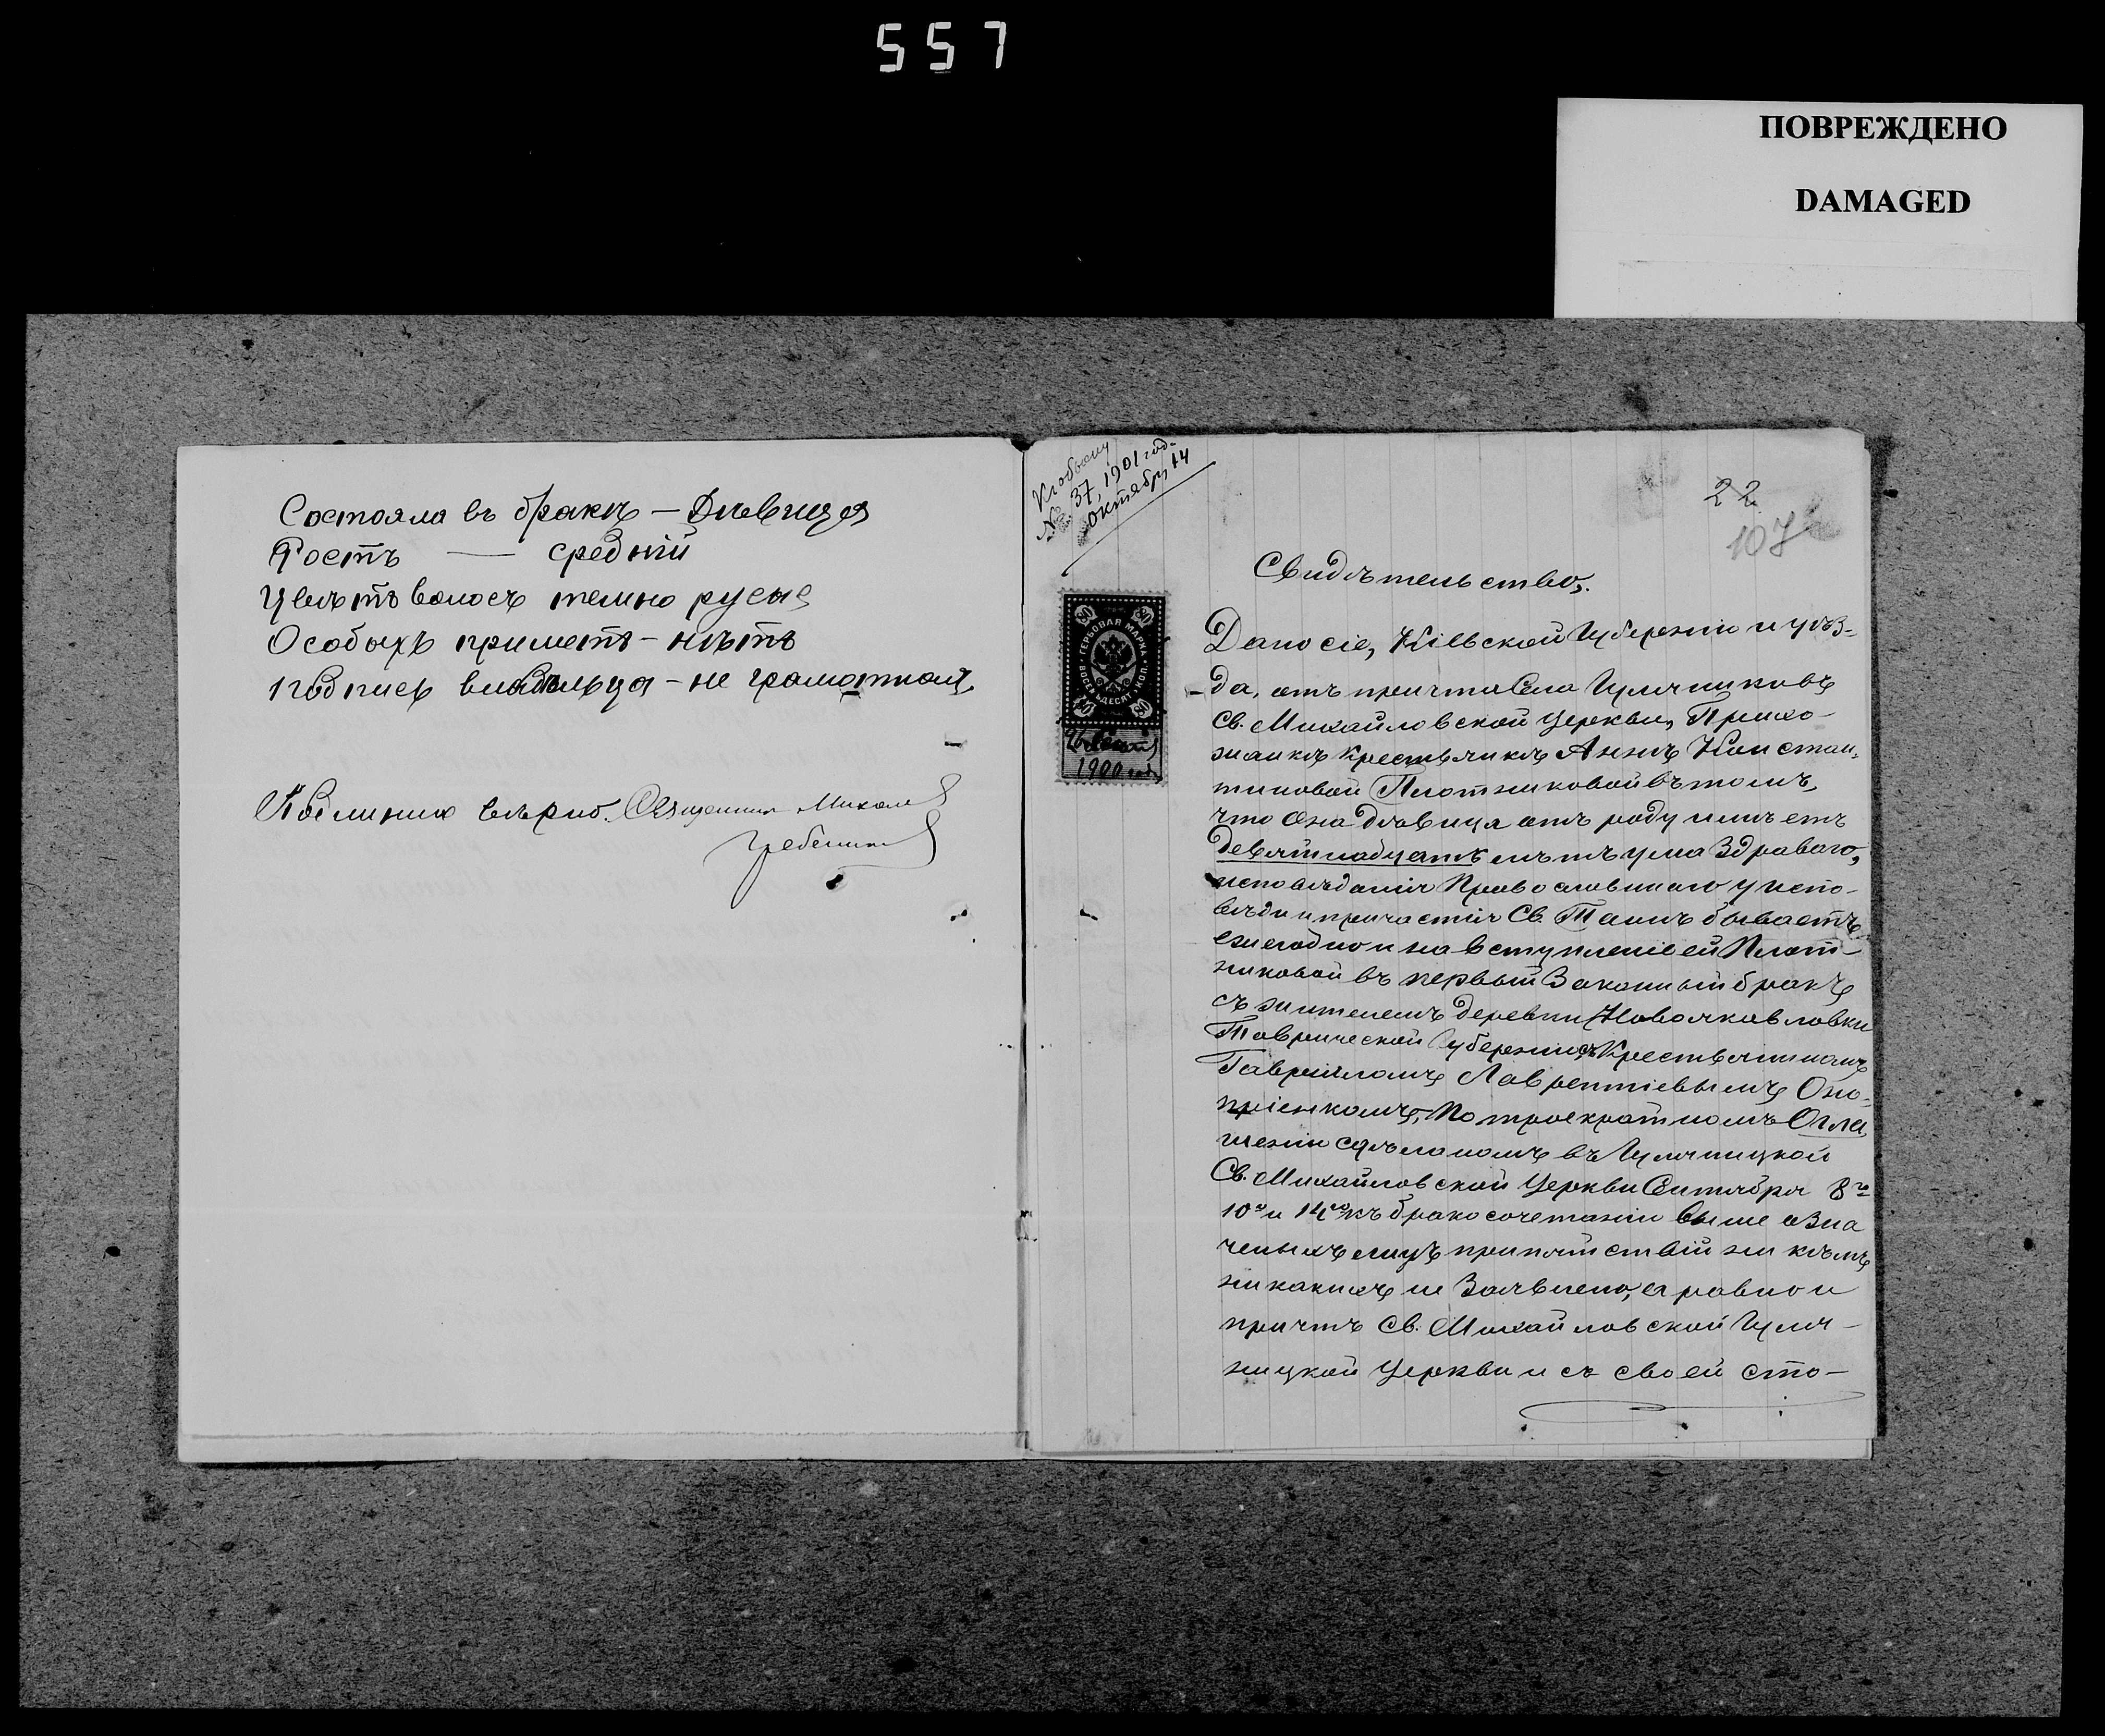 557
ПОВРЕЖДЕНО
DAMAGED
Состояла въ бракѣ – Дѣвица
Ростъ — средній
Цвѣтъ волосъ темно русые
Особыхъ приметъ – нѣтъ
Подпись владѣльца – не грамотная
Священник Михаил
№ 37, 1901 год
октября 14
22
107
Свидѣтельство.
ГЕРБОВАЯ МАРКА
ВОСЕМЬДЕСЯТ КОП.
80 80
80 80
1900 года
Дано сіе, Кіевской Губерніи и уѣз-
да, отъ причта Села Гуляниковъ
Св. Михайловской Церкви, Прихо-
жанкѣ крестьянкѣ Аннѣ Констан-
тиновой Плотниковой въ томъ,
что она дѣвица отъ роду имѣетъ
девятнадцать лѣтъ ума здраваго,
исповѣданія Православнаго у испо-
вѣди и причастія Св. Таинъ бываетъ
ежегодно и на вступленіе ей Плот-
никовой въ первый Законный бракъ
съ жителемъ деревни Новояковловки
Таврической Губерніи съ Крестьяниномъ
Гавріиломъ Лаврентіевымъ Оно-
пріенкомъ, По троекратномъ Огла
шеніи сдѣланомъ въ Гуляницкой
Св. Михайловской Церкви Сентября 8го
10го и 14го къ бракосочетанію выше озна
ченыхъ лицъ припятствій ни кѣмъ
никакихъ не Заявлено, а равно и
причтъ Св. Михайловской Гуля-
ницкой Церкви и съ своей сто-